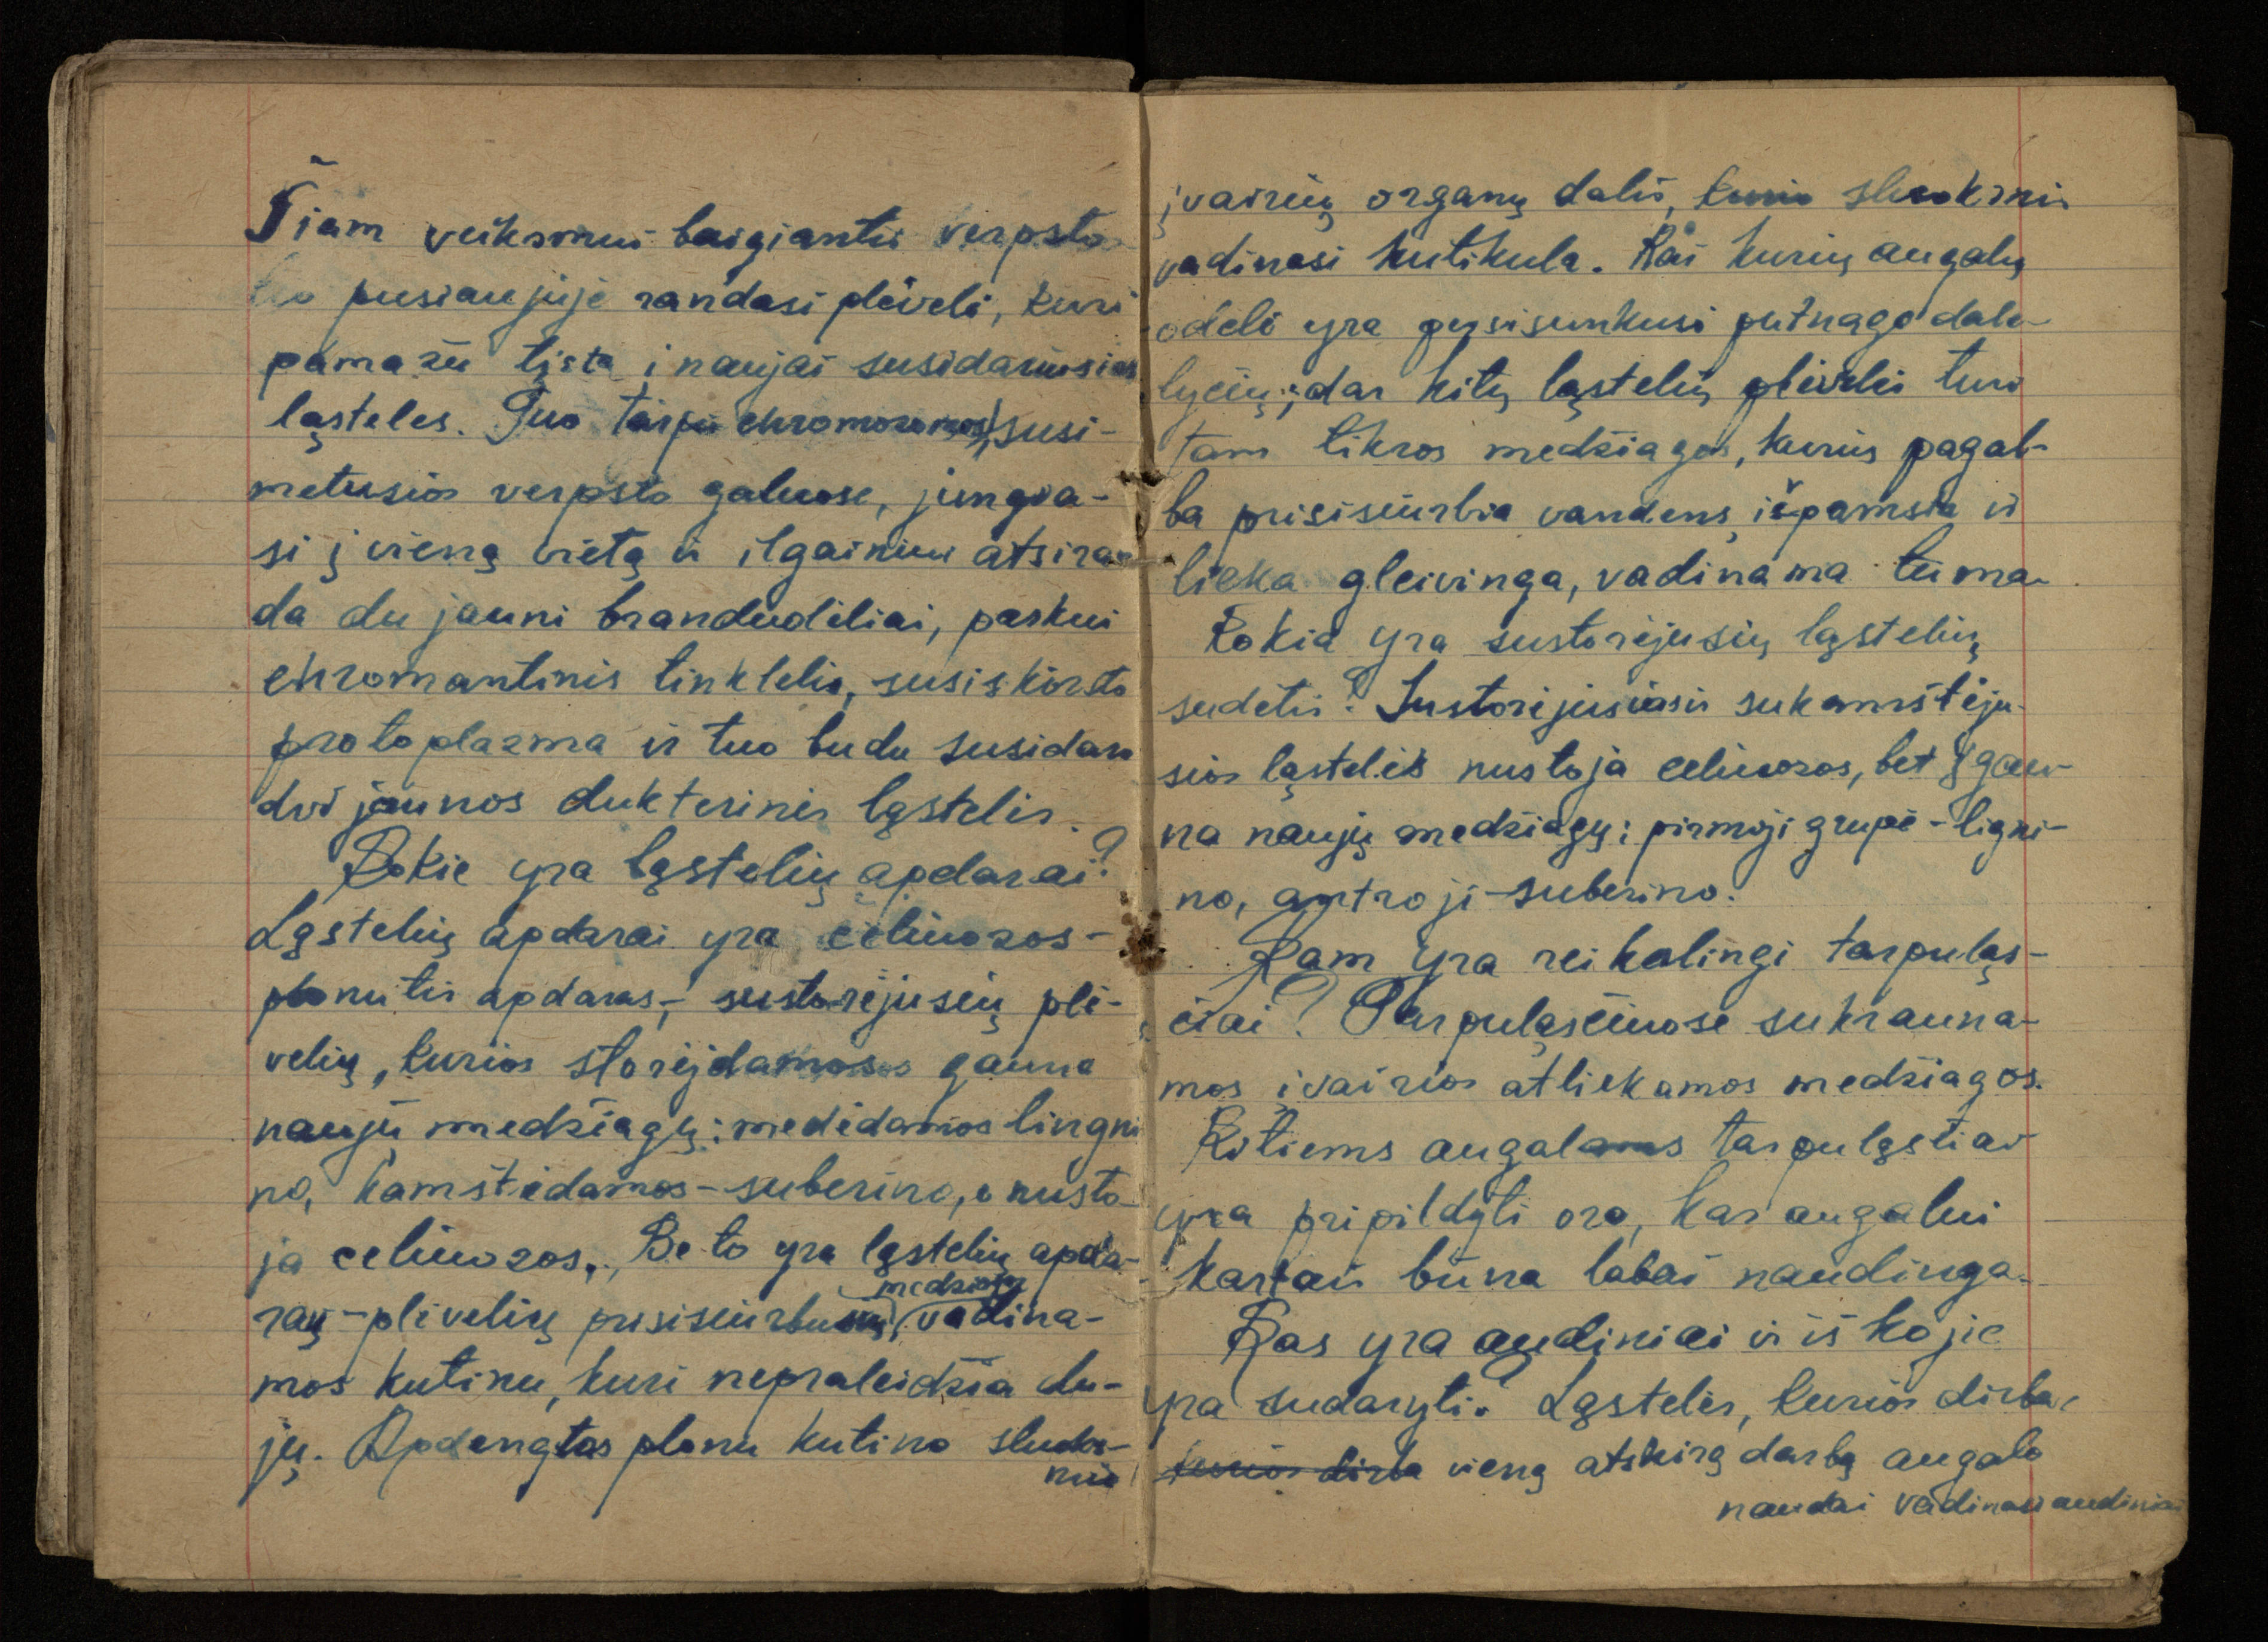 Šiam veiksmui baigiantis verpsto
pusiaujuje randasi plėvelė, kuri
pamažu tįsta į naujai susidariusias
ląsteles. Tuo tarpu chromozomos, susi-
metusios verpsto galuose, jungia-
si į vieną vietą ir ilgainiui atsiran-
da du jauni branduolėliai, paskui
chromantinis tinklelis, susiskirsto
protoplazma ir tuo budu susidaro
dvi jaunos dukterinės ląstelės.
Kokie yra ląstelių apdarai?
Ląstelių apdarai yra celiuozos-
plonutis apdaras, sustorėjusių plė-
velių, kurios storėjdamosos gauna
naujų medžiagų: medėdamos lingni
no, kamštėdamos-suberino, o nusto-
ja celiuozos. Be to yra ląstelių apda-
rų-plėvelių prisisiurbusių medžiagų, vadina-
mos kutinu, kuri nepraleidžia du-
jų. Apdengtos plonu kutino sluoks-
niu
įvairių organų dalis, kurio sluoksnis
vadinasi kutikula. Kai kurių augalų
odelė yra persisunkusi putnago dale-
lyčių; dar kitų ląstelių plėvelės turi
tam tikros medžiagos, kurios pagal-
ba prisisiurbia vandens, išpamsta ir
lieka gleivinga, vadinama tuma.
Kokia yra sustorėjusių ląstelių
sudėtis? Sustorėjusiosios sukamštėju-
sios ląstelės nustoja celiuozos, bet įgau-
na naujų medžiagų: pirmoji grupė-ligni-
no, antroji-suberino.
Kam yra reikalingi tarpuląs-
čiai? Tarpuląsčiuose sukrauna-
mos įvairios atliekamos medžiagos.
Kitiems augalams tarpuląstiai
yra pripildyti oro, kas augalui
kartais būna labai naudinga.
Kas yra audiniai ir iš ko jie
yra sudaryti? Ląstelės, kurios dirba
kurios dirba vieną atskirą darbą augalo
naudai vadinasi audiniai